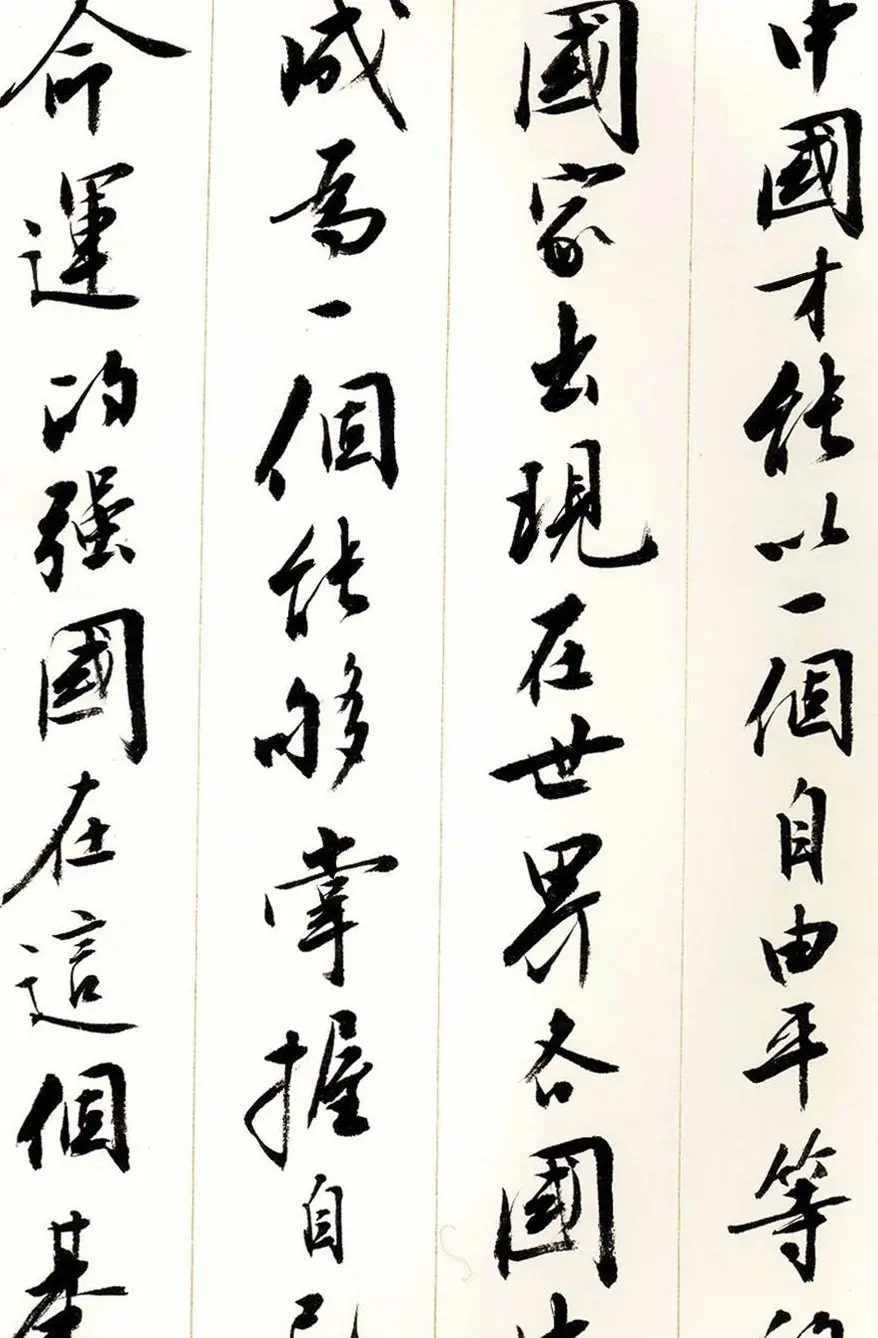 中國才能以一個自由平等的
國家出現在世界各國中
成爲一個能够掌握自己
命運的强國在這個基